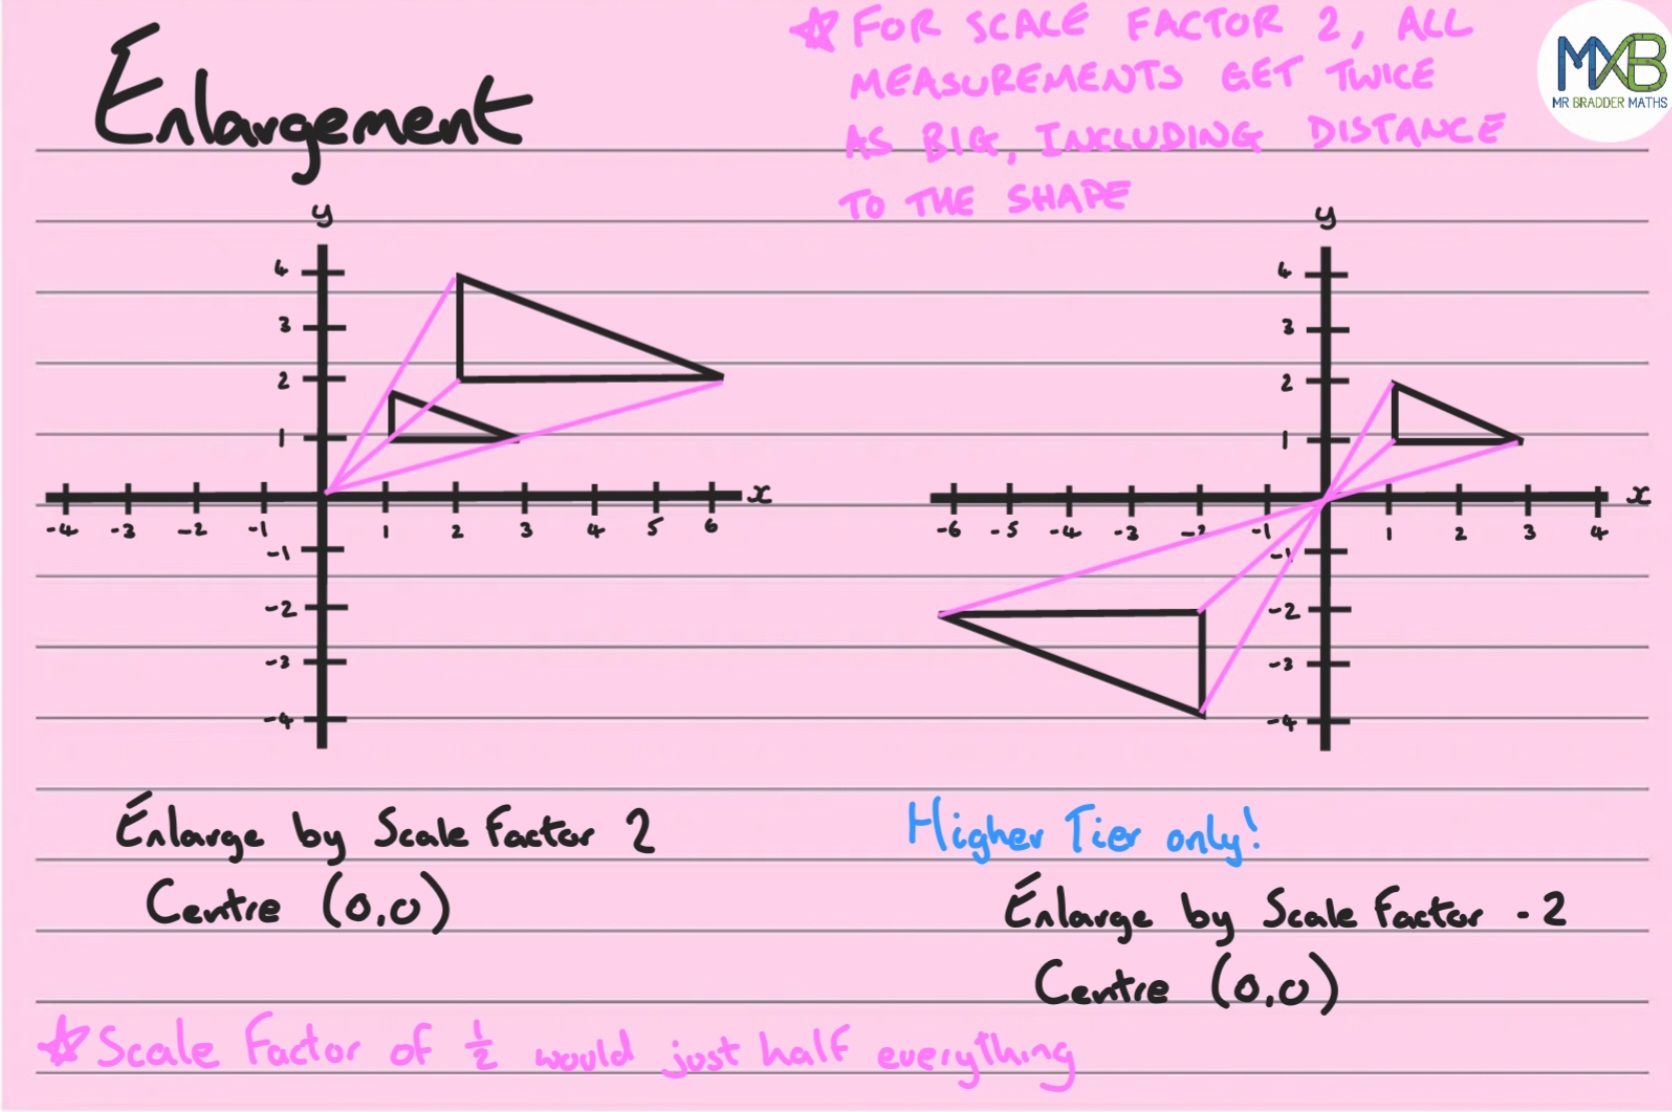 Enlargement
☆ FOR SCALE FACTOR 2, ALL
MEASUREMENTS GET TWICE
AS BIG, INCLUDING DISTANCE
TO THE SHAPE
MXB
MR BRADDER MATHS
y
4
3
2
1
-4 -3 -2 -1 1 2 3 4 5 6 x
-1
-2
-3
-4
y
4
3
2
1
-6 -5 -4 -3 -2 -1 1 2 3 4 x
-1
-2
-3
-4
Enlarge by Scale Factor 2
Centre (0,0)
Higher Tier only!
Enlarge by Scale Factor -2
Centre (0,0)
☆ Scale Factor of 1/2 would just half everything